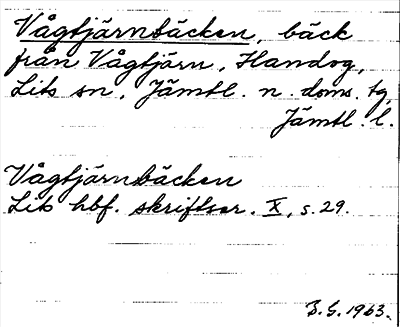 Vågtjärnbäcken, bäck
från Vågtjärn, Handog,
Lits sn, Jämtl. n. doms. tg,
Jämtl. l.
Vågtjärnbäcken
Lits hbf. skriftser. X, s. 29.
B. G. 1963.